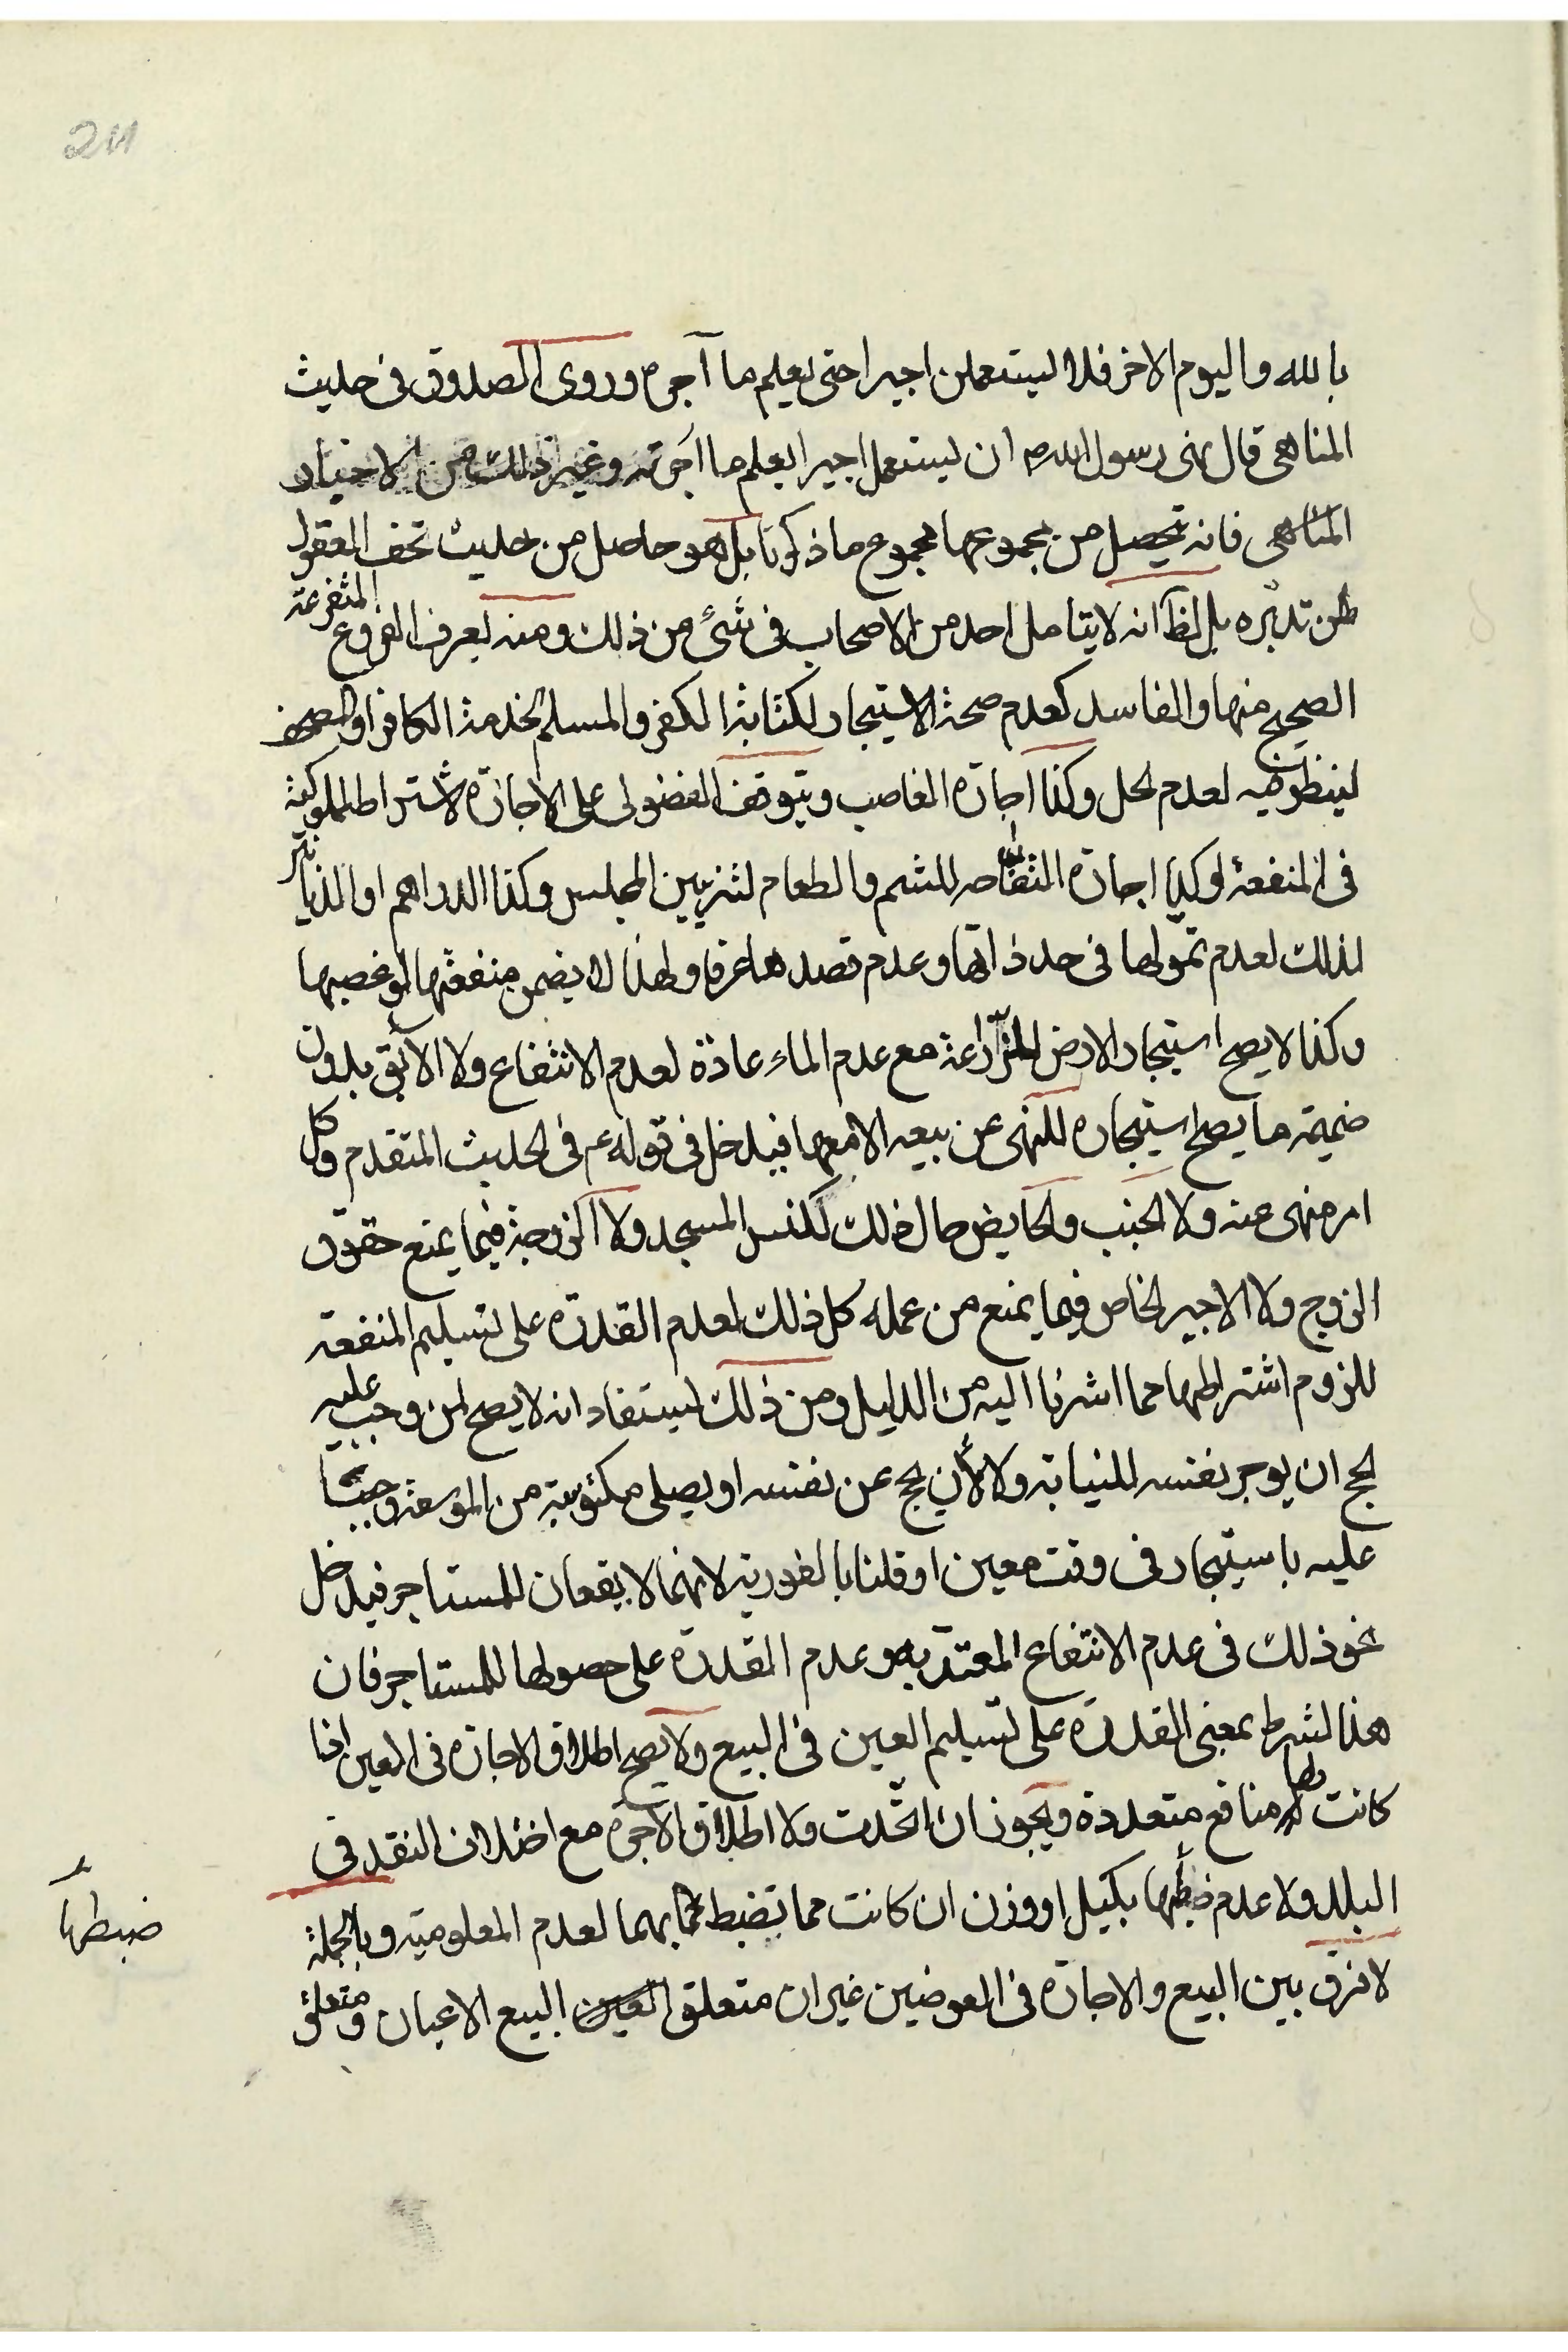 211
بالله واليوم الاخر فلا ليستعملن اجيرا حتى يعلم ما آجره وروى الصدوق فى حديث
المناهى قال نهى رسول الله ص ان يستعمل اجير ا يعلم ما اجرته وغير ذلك من الاخبار
المناهى فانه تحصل من مجموعها مجموع ما ذكرنا بل هو حاصل من حديث تحف العقول
لمن تدبره بل الظ انه لا يتامل احد من الاصحاب فى شئ من ذلك ومنه يعرف الفروع المتفرعة
الصحيح منها والفاسد كعدم صحة الاستيجار لكتابة الكفر والمسلم لخدمة الكافر او المصحف
لينظر فيه لعدم لحل وكذا اجارة الغاصب ويتوقف الفضولى على الاجازة لاشتراط المملوكية
فى المنفعة او كذا اجارة التفاحه للشم والطعام لتزيين المجلس وكذا الدراهم او الدنانير
لذلك لعدم تمولها فى حد ذاتها وعدم قصدها عرفا ولهذا لا يضمن منفعتها لو غصبها
وكذا لا يصح استيجار الارض للزراعة مع عدم الماء عادة لعدم الانتفاع ولا الآبق بدون
ضميمة ما يصح استيجاره للنهى عن بيعه الا معها فيدخل فى قوله ع فى الحديث المتقدم وكل
امر منهى عنه ولا الجنب والحايض حال ذلك لكنس المسجد ولا الزوجة فيما يمنع حقوق
الزوج ولا الاجير لخاص فيما يمنع من عمله كل ذلك لعدم القدرة على تسليم المنفعة
للزوم اشتراطها مما اشرنا اليه من الدليل ومن ذلك يستفاد انه لا يصح لمن وجب عليه
لحج ان يوجر نفسه للنيابة ولا لأن يحج عن نفسه او يصلى مكتوبة من الموسعة وجبتا
عليه باستيجار فى وقت معين او قلنا بالفورية لانهما لا يقعان للمستاجر فيدخل
نحو ذلك فى عدم الانتفاع المعتد به وعدم القدرة على حصولها للمستاجر فان
هذا لشرط بمعنى القدرة على تسليم العين فى البيع ولا يصح اطلاق الاجارة فى العين اذا
كانت لها منافع متعددة ويجوز ان اتحدت ولا اطلاق الاجرة مع اختلاف النقد فى
البلد ولا عدم ضبطها بكيل او وزن ان كانت مما يضبط بهما لعدم المعلومية وبالجملة
لا فرق بين البيع والاجارة فى العوضين غير ان متعلق البيع الاعيان ومتعلق
ضبطها